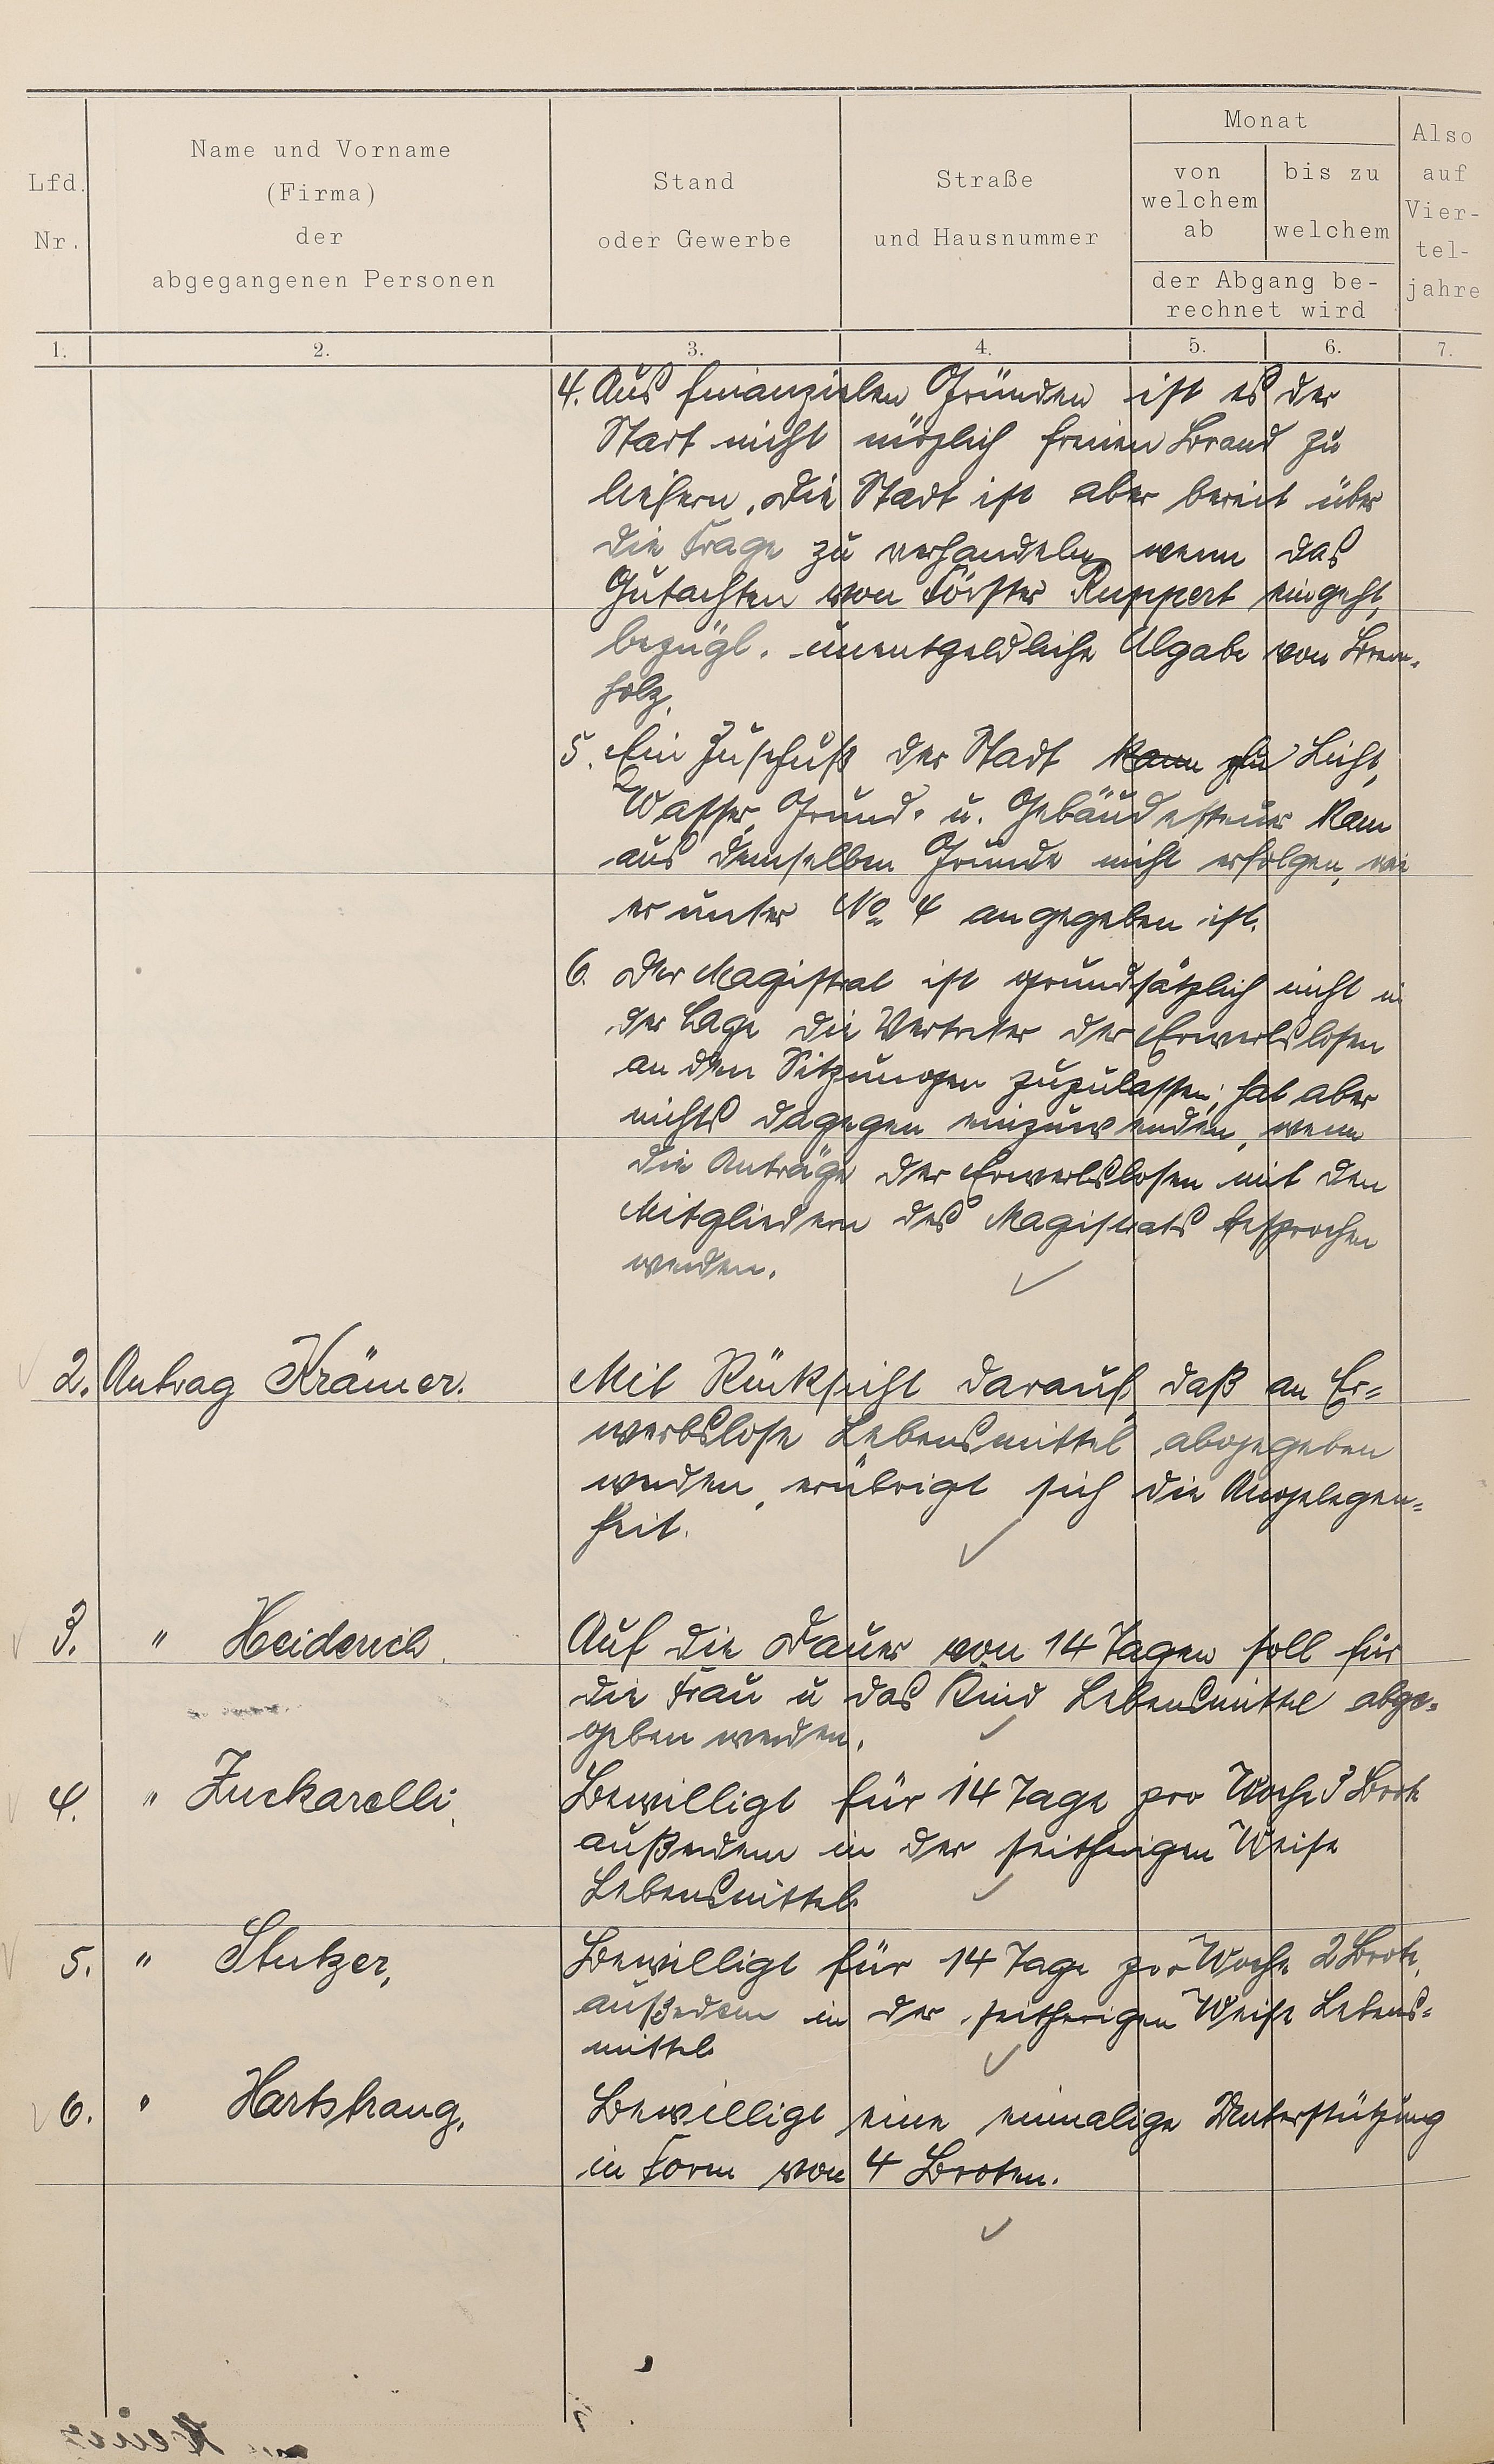 Lfd. Nr.
Name und Vorname
(Firma)
der
abgegangenen Personen
Stand
oder Gewerbe
Straße
und Hausnummer
Monat
von welchem ab
bis zu welchem
der Abgang be-
rechnet wird
Also auf Vier-
tel-
jahre
1. 2. 3. 4. 5. 6. 7.
4. Aus finanzielen Gründen ist es der
Stadt nicht möglich freien Brand zu
liefern. Die Stadt ist aber bereit über
die Frage zu verhandeln wenn das
Gutachten von Förster Ruppert eingeht,
bezügl. unentgeldliche Abgabe von Bren-
holz.
5. Ein Zuschuß der Stadt kann zu Licht,
Wasser, Grund- u. Gebäudesteuer kann
aus demselben Grunde nicht erfolgen, wie
er unter No 4 angegeben ist.
6. Der Magistrat ist grundsätzlich nicht in
der Lage die Vertreter der Erwerbslosen
an den Sitzungen zuzulassen; hat aber
nichts dagegen einzuwenden, wenn
die Anträge der Erwerbslosen mit den
Mitgliedern des Magistrats besprochen
werden.
2. Antrag Krämer. Mit Rücksicht darauf, daß an Er=
werbslose Lebensmittel abgegeben
werden, erübrigt sich die Angelegen=
heit.
3. " Heiderich. Auf die Dauer von 14 Tagen soll für
die Frau u das Kind Lebensmittel abge=
geben werden.
4. " Zuckarelli. Bewilligt für 14 Tage pro Woche 3 Brote
außerdem in der seitherigen Weise
Lebensmittel.
5. " Stutzer, Bewilligt für 14 Tage pro Woche 2 Brote,
außedem in der seitherigen Weise Lebens=
mittel.
6. " Hartstrang. Bewilligt eine einmalige Unterstützung
in Form von 4 Broten.